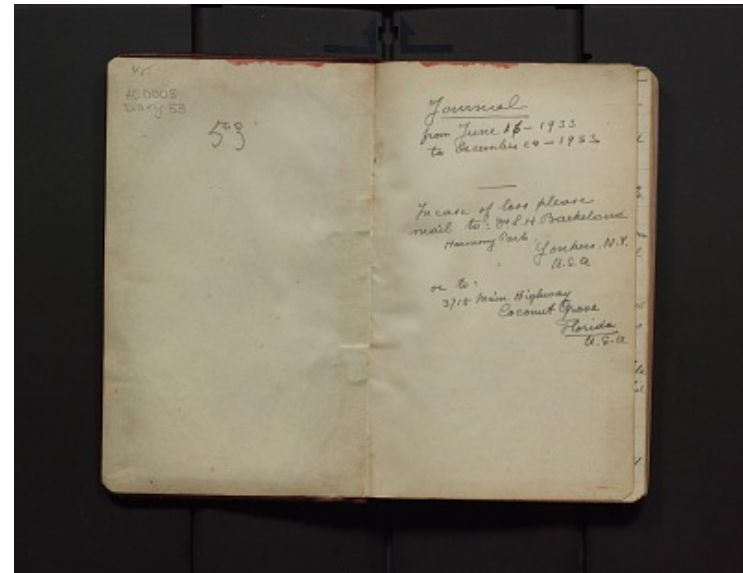 AC0005
Diary 53
53
Journal
from June 16 - 1933
to December 20 - 1933
In case of loss please
mail to: Dr L. H. Baekeland
Harmony Park
Yonkers, N.Y.
U.S.A
or to:
3715 Main Highway
Coconut Grove
Florida
U.S.A